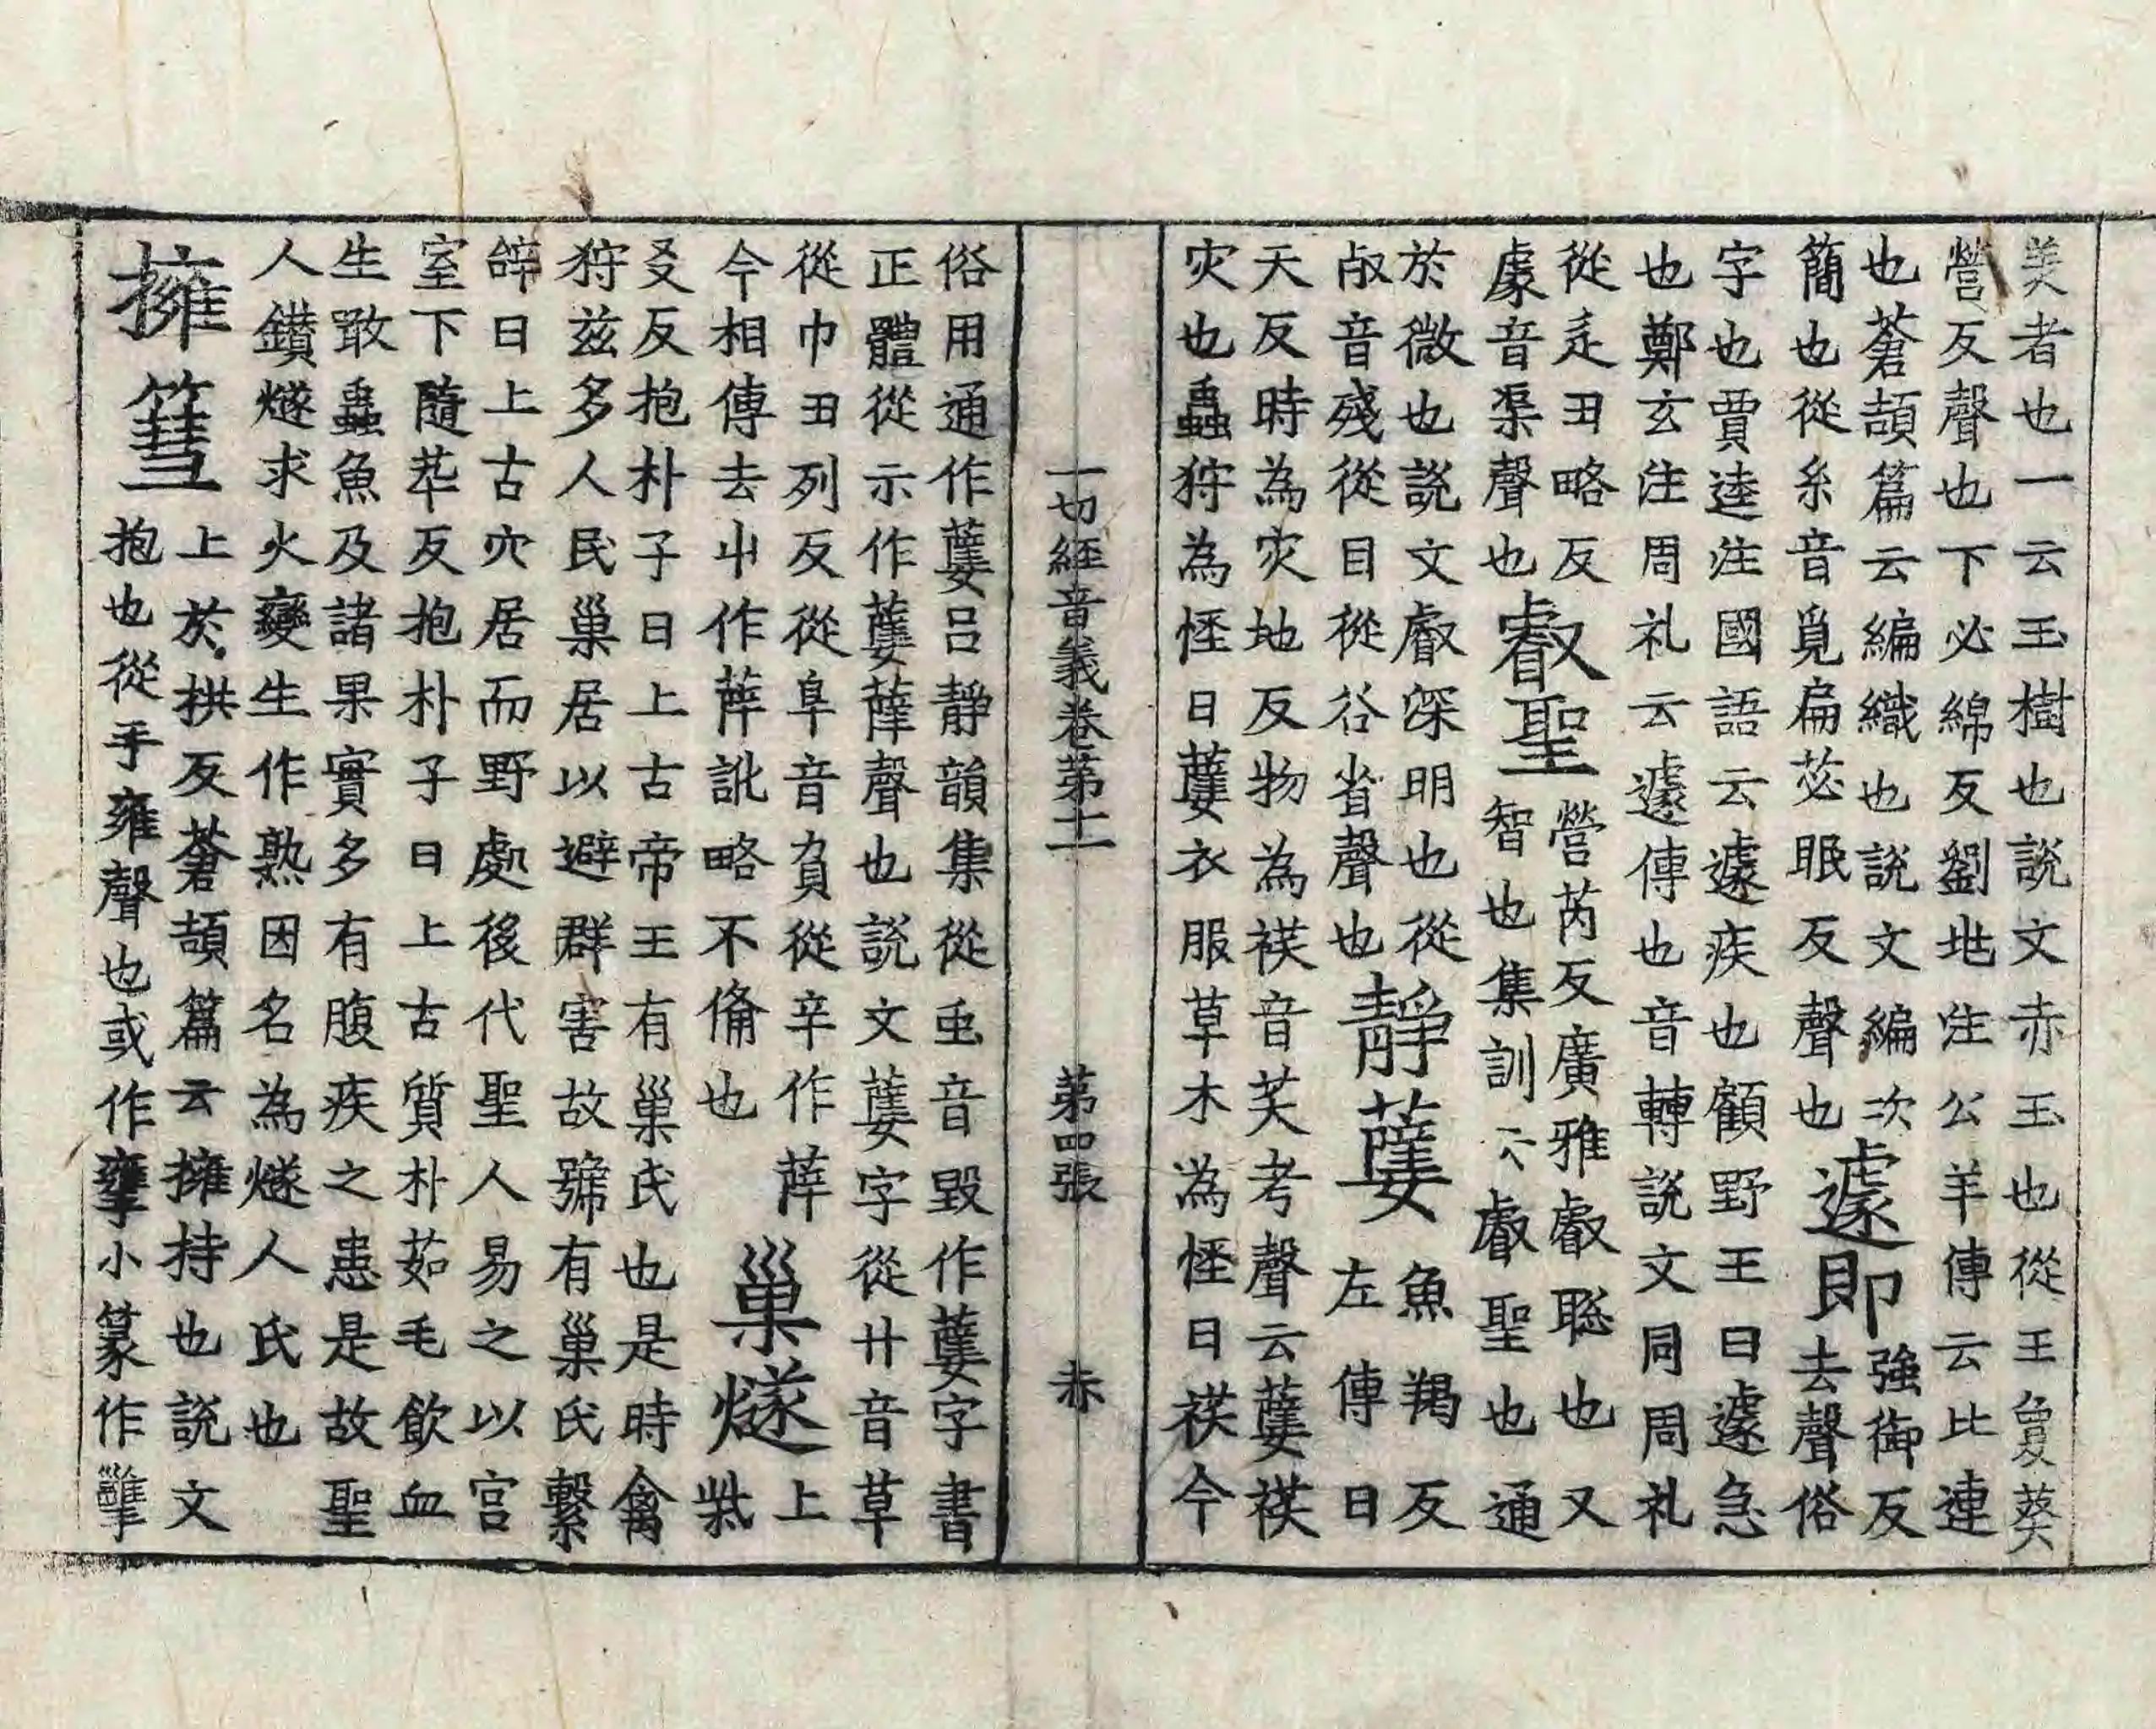 美者也一云玉樹也說文赤玉也從王敻葵
營反聲也下必綿反劉地注公羊傳云比連
也蒼頡篇云編織也說文編次
簡也從糸音覓扁苾眠反聲也
遽即
強御反
去聲俗
字也賈逵注國語云遽疾也顧野王曰遽急
也鄭玄注周礼云遽傳也音轉說文同周礼
從辵丑略反
豦音渠聲也
叡聖
營芮反廣雅叡聦也又
智也集訓云叡聖也通
於微也說文叡深明也從
㕡音殘從目從谷省聲也
靜䕥
魚羯反
左傳曰
天反時為灾地反物為祅音芺考聲云䕥祅
灾也蟲狩為恠曰䕥衣服草木為恠曰祅今
一切經音義卷第十一 第四張 赤
俗用通作䕥呂靜韻集從䖝音毀作䕥字書
正體從示作䕥薩聲也說文䕥字從廾音草
從巾丑列反從阜音負從辛作薛
今相傳去屮作薛訛略不俻也
巢燧
上
柴
爻反抱朴子曰上古帝王有巢氏也是時禽
狩茲多人民巢居以避群害故號有巢氏繫
辝曰上古穴居而野處後代聖人易之以宮
室下隨苹反抱朴子曰上古質朴茹毛飲血
生敢蟲魚及諸果實多有腹疾之患是故聖
人鑚燧求火變生作熟因名為燧人氏也
擁篲
上於拱反蒼頡篇云擁持也說文
抱也從手雍聲也或作𢹬小篆作